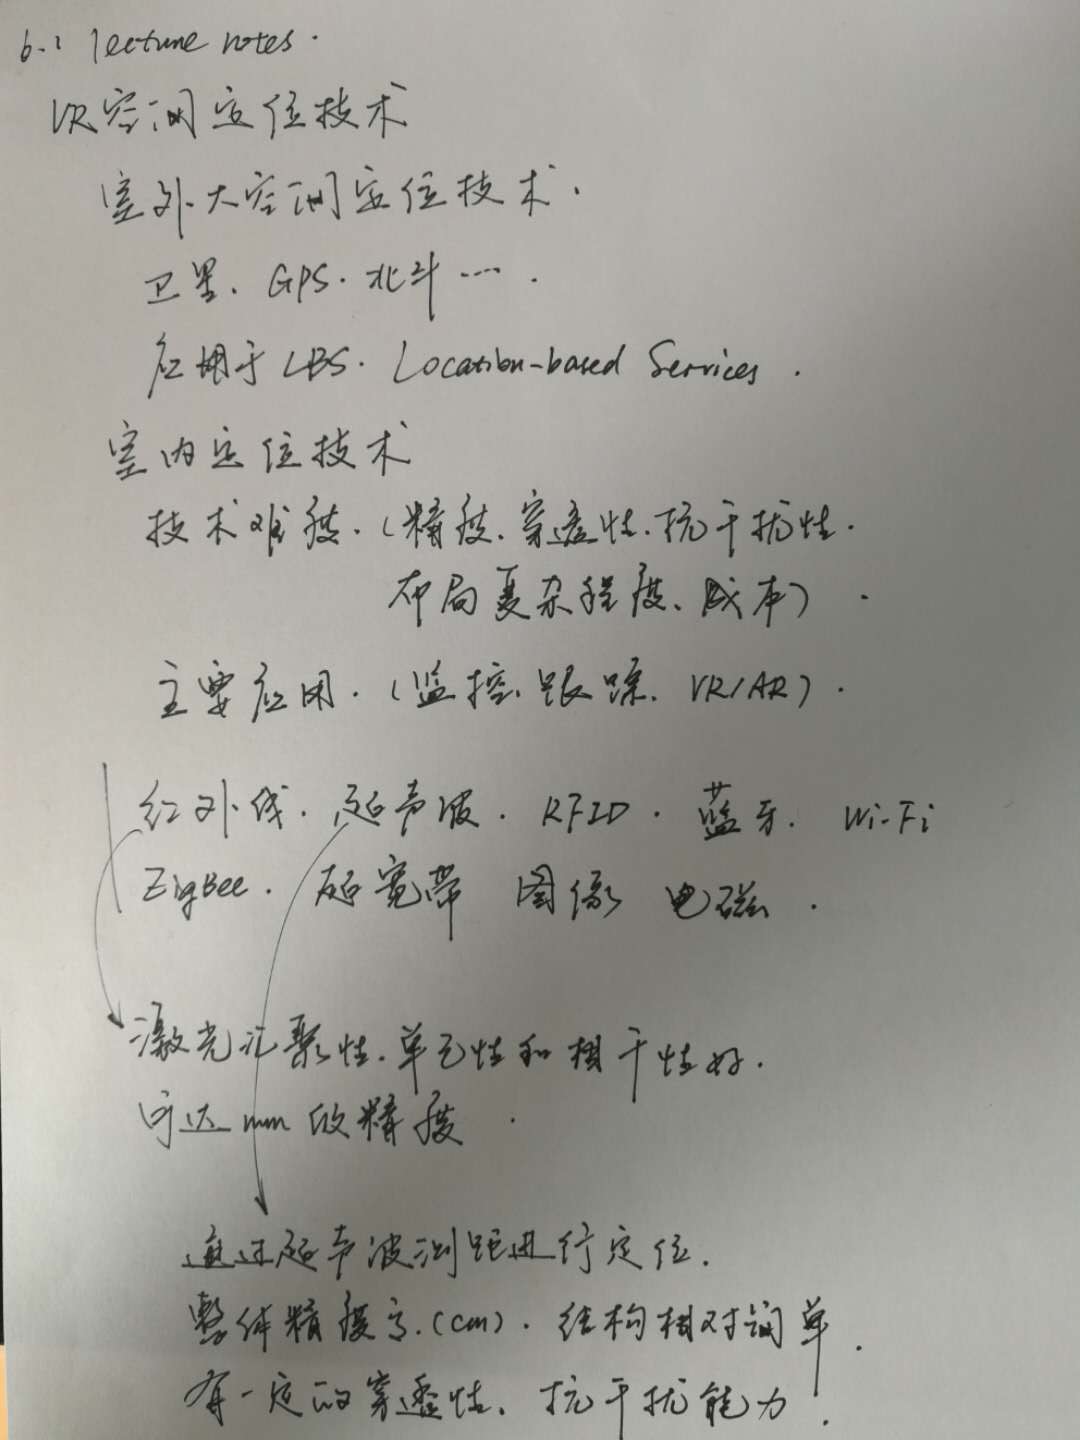 6.1 lecture notes.
VR空间定位技术
室外大空间定位技术.
卫星、GPS.北斗….
应用于LBS. Location-based Services.
室内定位技术
技术难度.(精度、穿透性.抗干扰性.
布局复杂程度、成本).
主要应用.(监控、跟踪、VR/AR).
红外线.超声波.RFID.蓝牙.Wi-Fi
ZigBee.超宽带 图像 电磁.
激光汇聚性.单色性和相干性好.
可达mm的精度.
通过超声波测距进行定位.
整体精度高.(cm).结构相对简单.
有一定的穿透性、抗干扰能力.